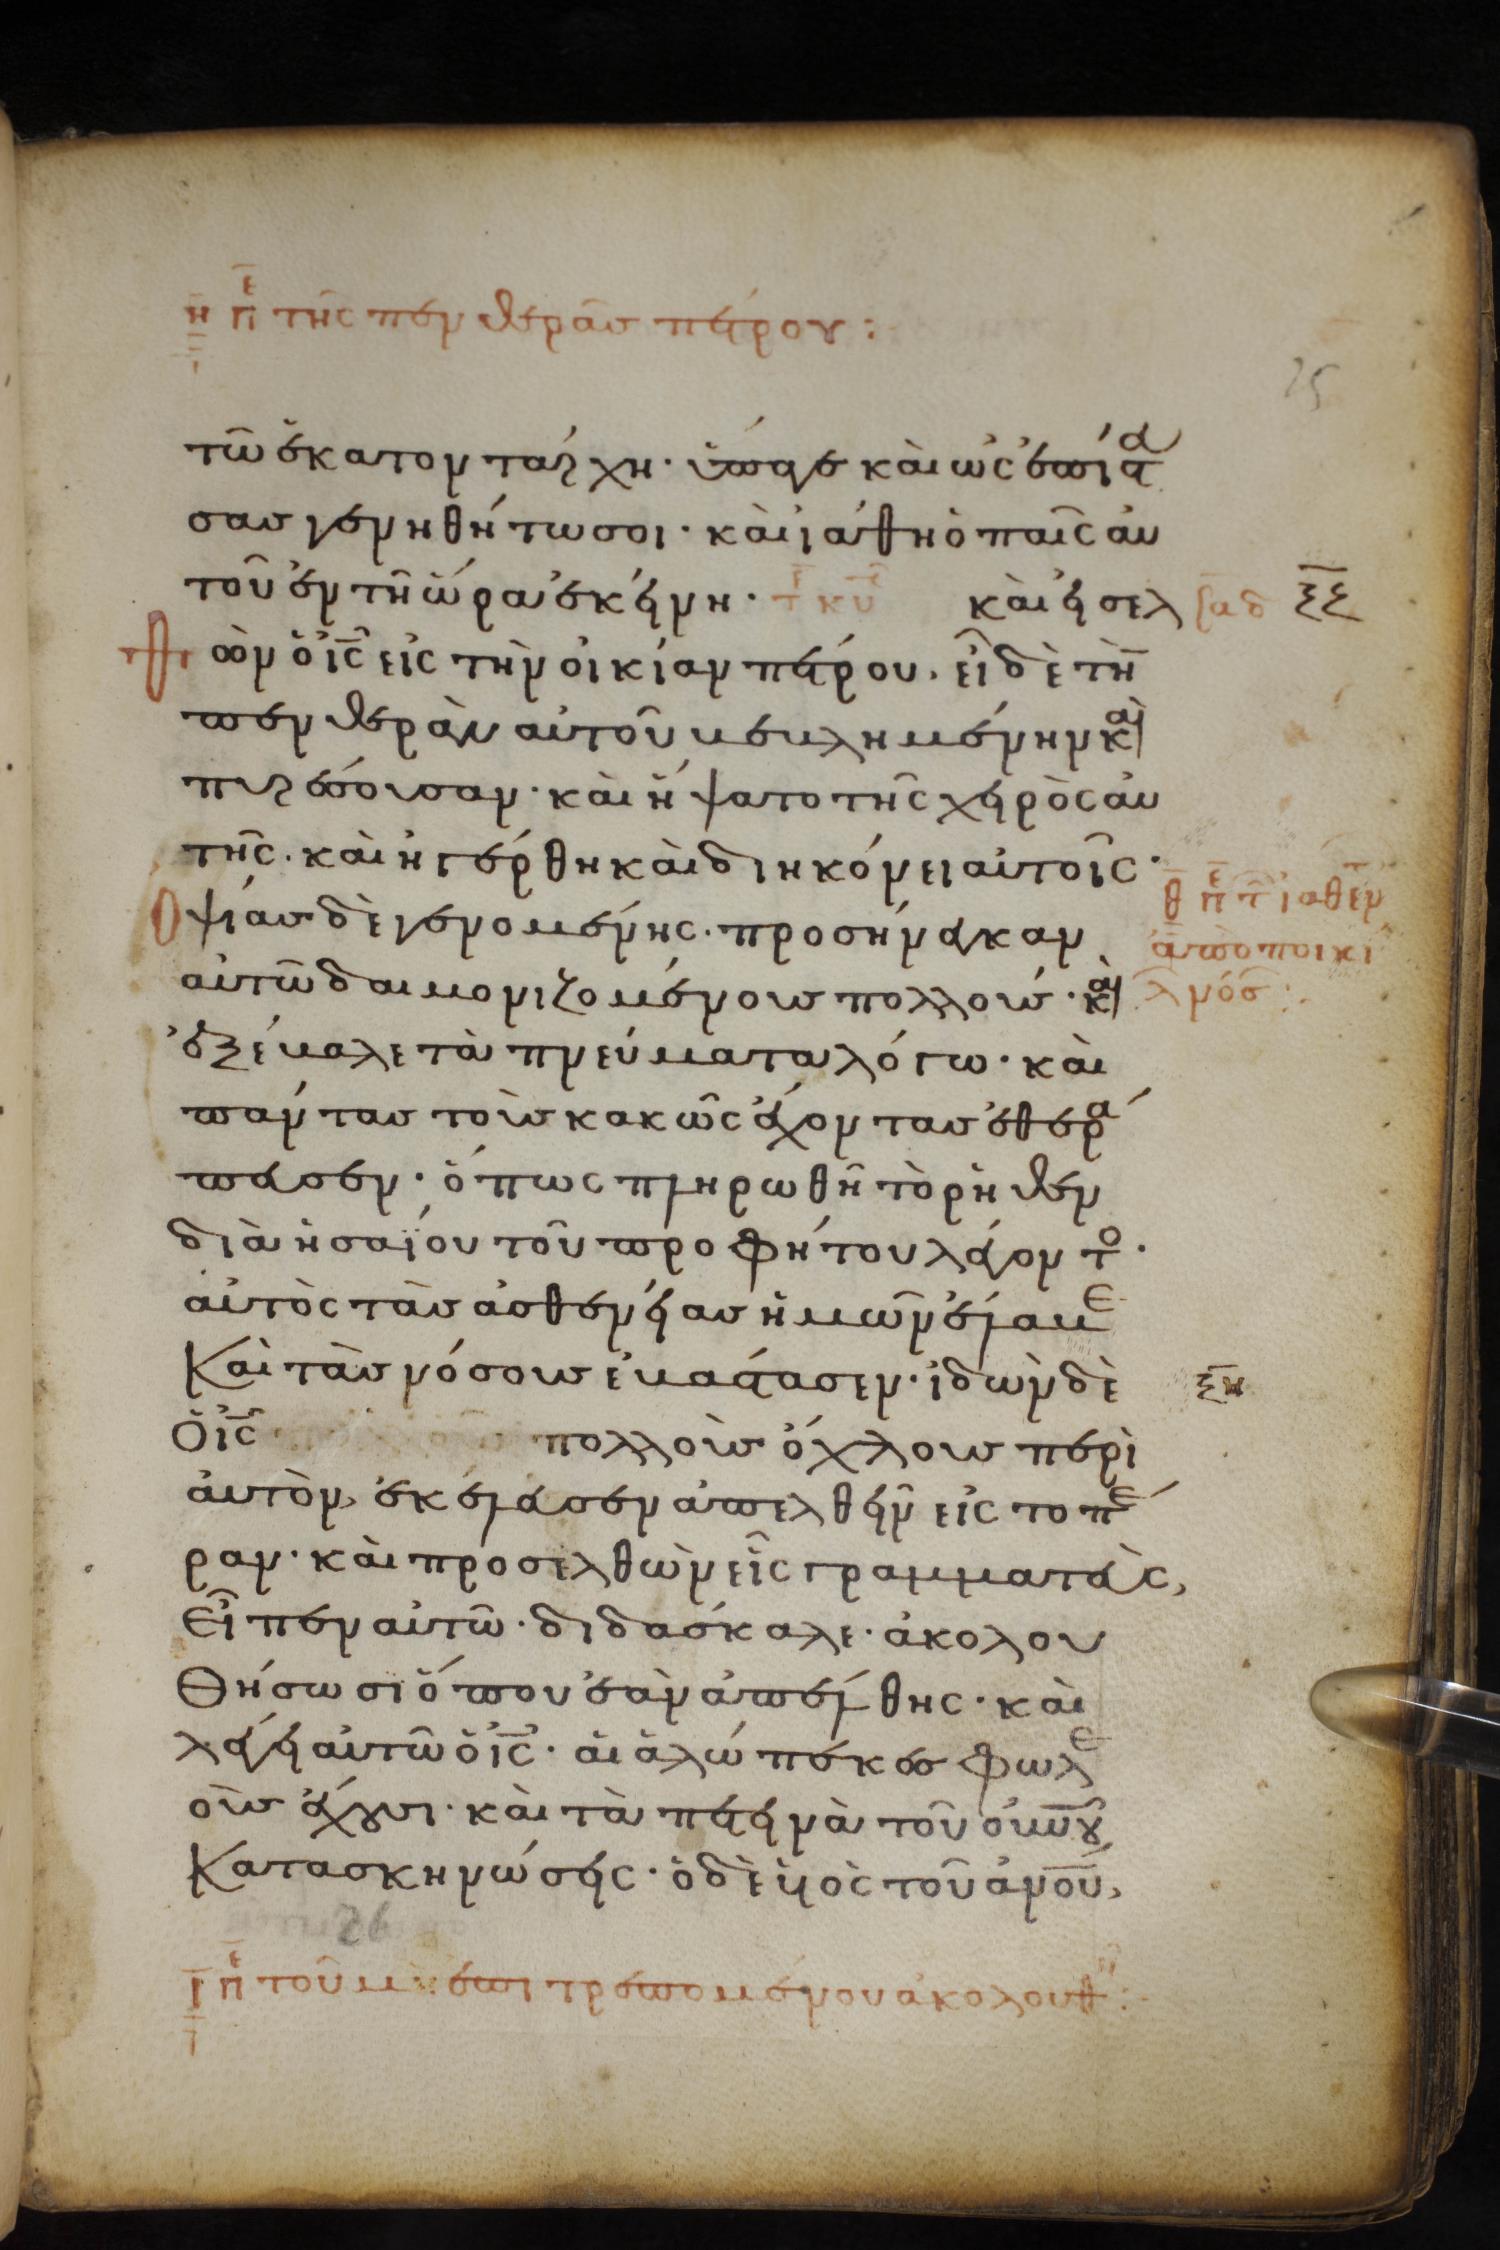 η πε της πενθερᾶσ πέτρου:
25
τῶ ἑκατοντάρχη· ὕπαγε καὶ ὡς ἐπίστευ
σασ γενηθήτω σοι· καὶ ἰάθη ὁ παῖς αὐ
τοῦ ἐν τῆ ὥρα ἐκείνη· τε κυ καὶ εἰσελ σαδ ξζ
θὼν ὁ ις εἰς τὴν οἰκίαν πέτρου, εἶδε τὴν
πενθερὰν αὐτοῦ βεβλημένην καὶ
πυρέσσουσαν· καὶ ἥψατο τῆς χειρὸς αὐ
τῆς· καὶ ἠγέρθη καὶ διηκόνει αὐτοῖς·
Ὀψίασ δὲ γενομένης· προσήνεγκαν
θ πε τ ἰαθέν
ἀπὸ ποικί
λ νόσ:
αὐτῶ δαιμονιζομένουσ πολλούσ· καὶ
ἐξέβαλε τὰ πνεύματα λόγω· καὶ
πάντασ τοὺσ κακῶς ἔχοντασ ἐθερά
πευσεν· ὅπως πληρωθῆ τὸ ρηθὲν
διὰ ἡσαΐου τοῦ προφήτου λέγοντο·
αὐτὸς τὰσ ἀσθενείασ ἡμῶν ἔλαβε
Καὶ τὰσ νόσουσ ἐβάστασεν· ἰδὼν δὲ ξη
Ὁ ις πολλοὺσ ὄχλουσ περὶ
αὐτὸν, ἐκέλευσεν ἀπελθεῖν εἰς το πέ
ραν· καὶ προσελθὼν εἷς γραμματεὺς,
Εἶπεν αὐτῶ· διδάσκαλε· ἀκολου
Θήσω σϊ ὅπου ἐὰν ἀπέλθης· καὶ
λέγει αὐτῶ ὁ ις· αἱ ἀλώπεκεσ φωλε
οὺσ ἔχουσι· καὶ τὰ πετεινὰ τοῦ οὐνοῦ
Κατασκηνώσεις· ὁ δὲ υἱὸς τοῦ ἀνου,
26
ι πε τοῦ μὴ ἐπιτρεπομένου ἀκολουθ: